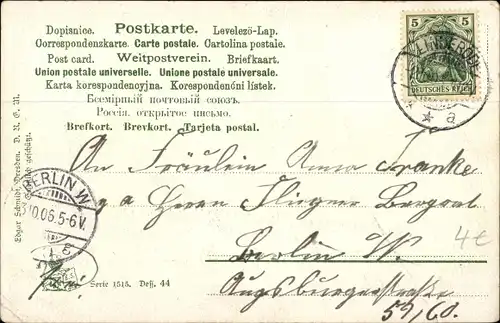 Dopisnice. Postkarte. Levelező-Lap.
Correspondenzkarte. Carte postale. Cartolina postale.
Post card. Weltpostverein. Briefkaart.
Union postale universelle. Unione postale universale.
Karta korespondencyjna. Korespondenční lístek.
Всемірный почтовый союзъ.
Россія. открытое письмо.
Brefkort. Brevkort. Tarjeta postal.
5 5
DEUTSCHES REICH
* a
An Fräulein Anna Franke
Herrn
Berlin W.
Augsburgerstrasse
59/60.
4€
BERLIN W.
.06.5-6V.
Edgar Schmidt, Dresden. D. R. G. M.
Serie 1515. Deß. 44